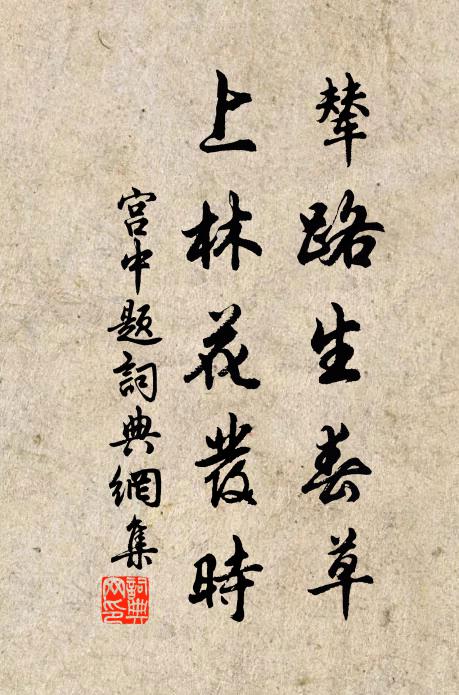 輦路生春草
上林花發時
宮中題詞典網集
詞典網印